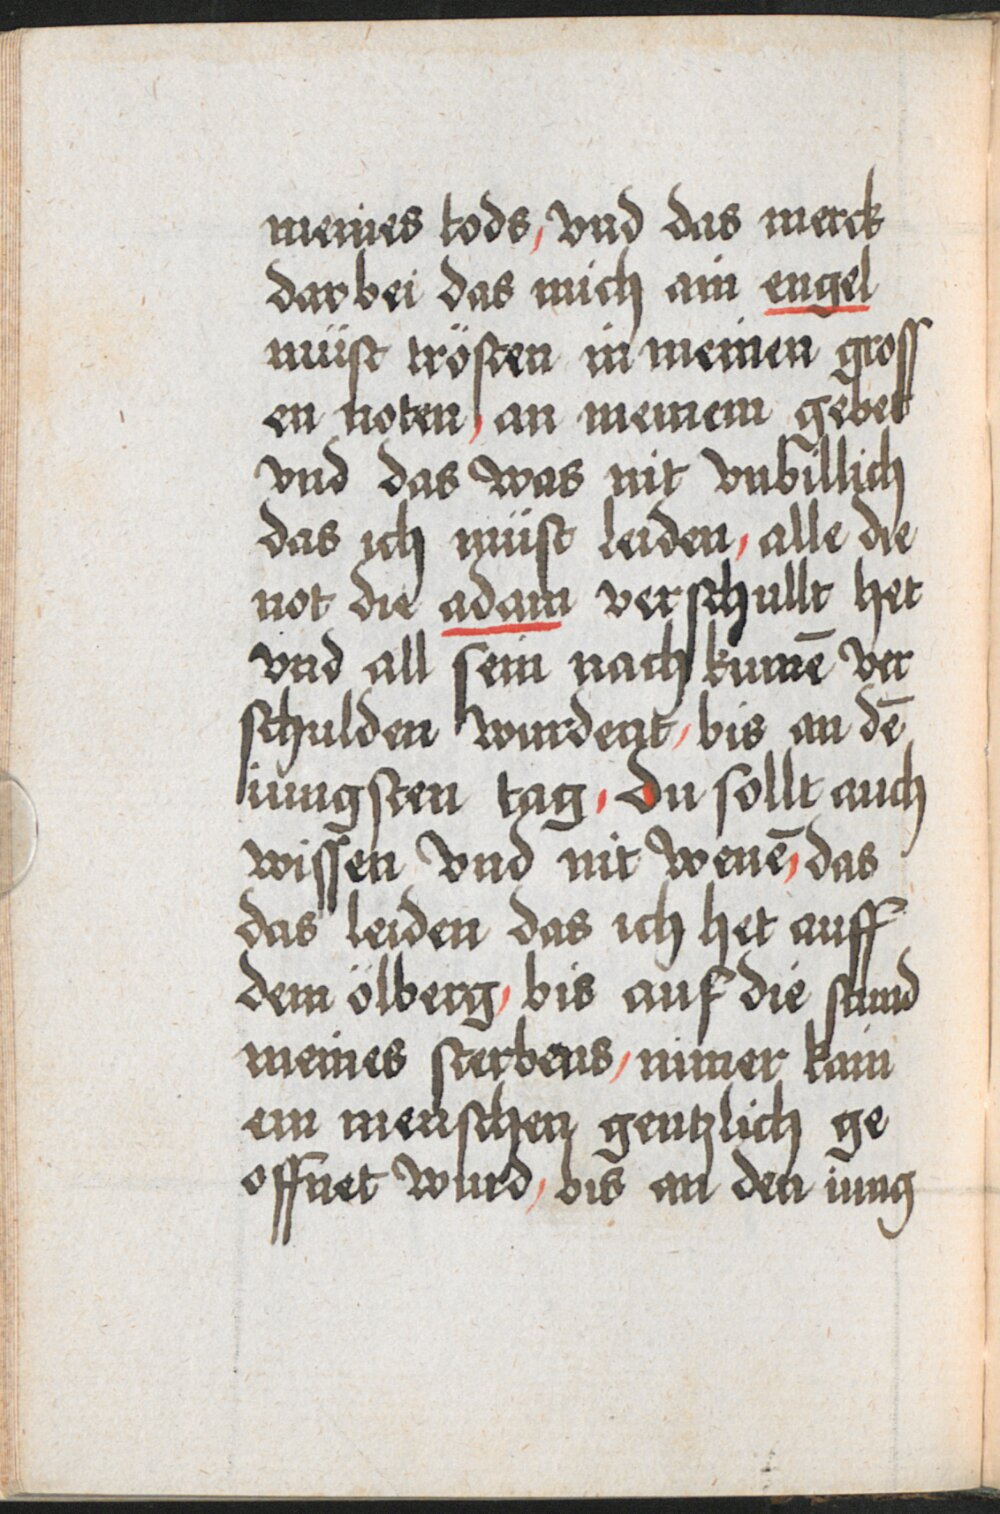 meines tods, vnd das merck
dar bei das mich ain engel
müst trösten in meinen gross
en noten, an meinem gebet
vnd das was nit vnbillich
das ich müst leiden, alle die
not die adam verschullt het
vnd all sein nach kumē ver
schulden wurdent, bis an dē
iungsten tag, Du sollt auch
wissen vnd nit wenē, das
das leiden das ich het auff
dem ölberg, bis auf die stund
meines sterbens, nimer kain
em menschen gentzlich ge
offnet wurd, bis an den iung